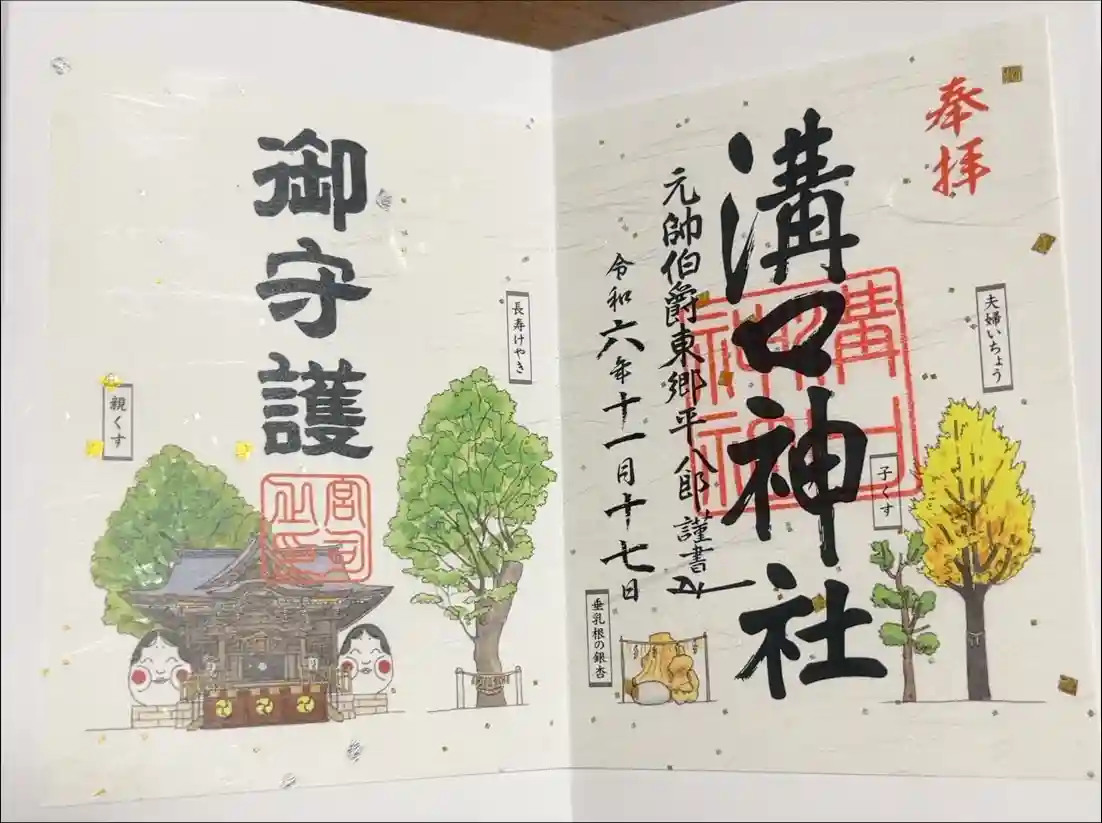 奉拝
溝口神社
元帥伯爵東郷平八郎謹書
令和六年十一月十七日
夫婦いちょう
子くす
垂乳根の銀杏
御守護
長寿けやき
親くす